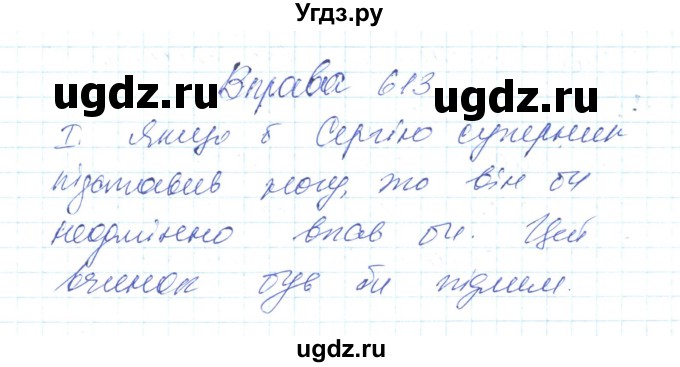 Угдз.ру
ugdz.ru
ugdz.ru
Вправа 613
І. Якщо б Сергію суперник
підставив ногу, то він би
неодмінно впав би. Цей
вчинок був би підлим.
ugdz.ru